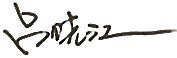 吕晓江